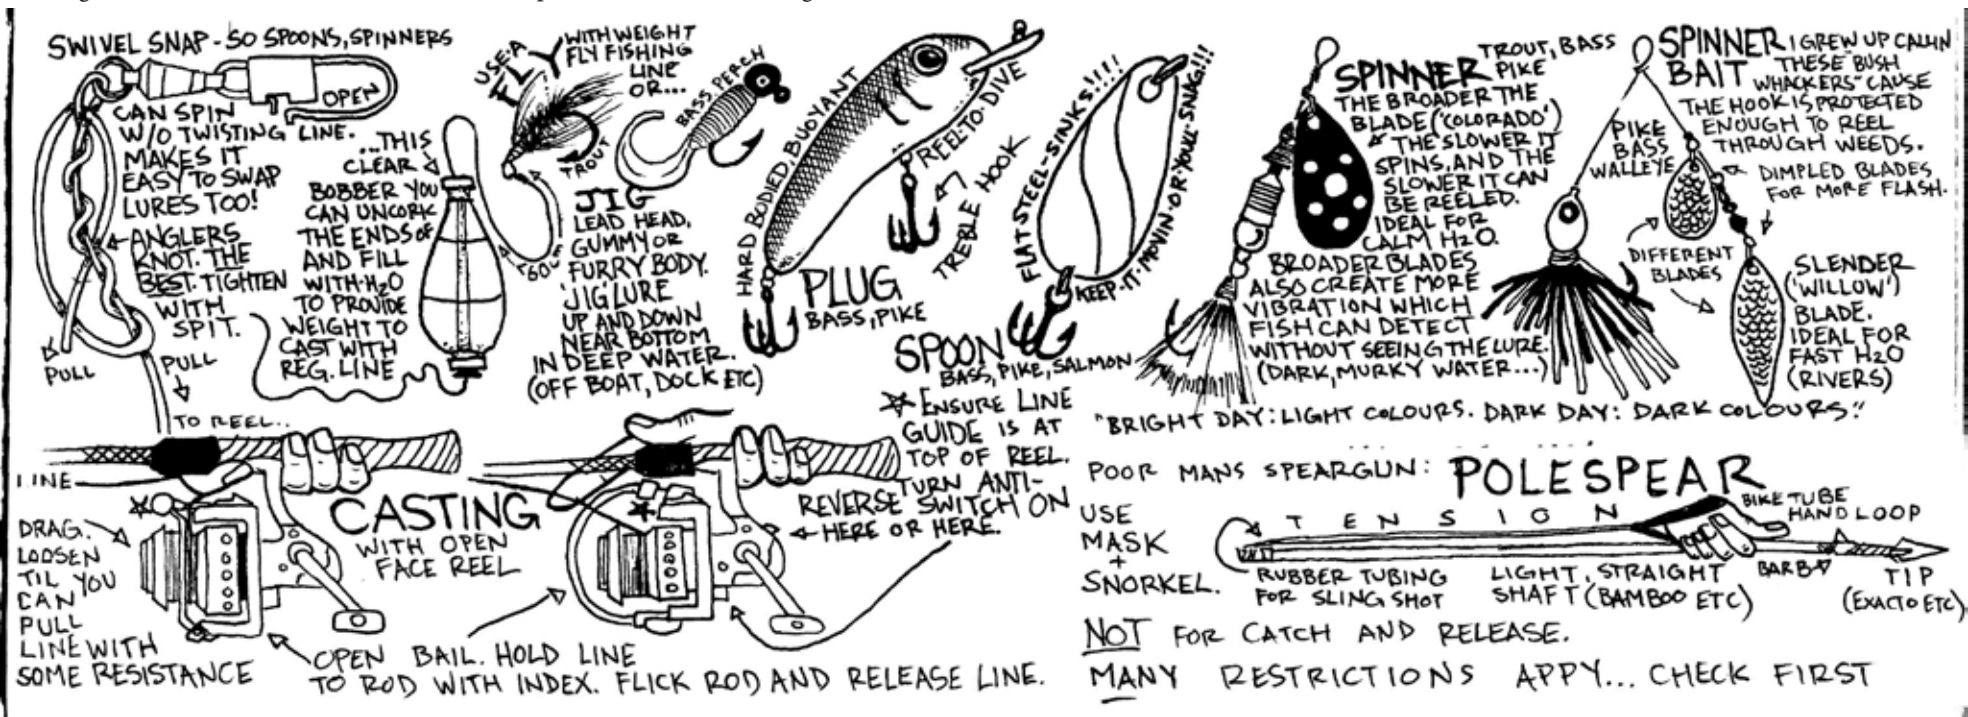 SWIVEL SNAP - SO SPOONS, SPINNERS
CAN SPIN
W/O TWISTING LINE.
MAKES IT
EASY TO SWAP
LURES TOO!
OPEN
ANGLERS
KNOT. THE
BEST. TIGHTEN
WITH
SPIT.
PULL
PULL
TO REEL...
...THIS
CLEAR
BOBBER YOU
CAN UNCORK
THE ENDS OF
AND FILL
WITH H2O
TO PROVIDE
WEIGHT TO
CAST WITH
REG. LINE
USE A
FLY
WITH WEIGHT
FLY FISHING
LINE
OR...
TROUT
~60cm
BASS, PERCH
JIG
LEAD HEAD,
GUMMY OR
FURRY BODY.
JIG LURE
UP AND DOWN
NEAR BOTTOM
IN DEEP WATER.
(OFF BOAT, DOCK ETC)
HARD BODIED, BUOYANT
REEL-TO-DIVE
TREBLE HOOK
PLUG
BASS, PIKE
FLAT STEEL-SINKS!!!!
KEEP-IT-MOVIN-OR-YOU'LL SNAG!!!
SPOON
BASS, PIKE, SALMON
TROUT, BASS
PIKE
SPINNER
THE BROADER THE
BLADE ('COLORADO')
THE SLOWER IT
SPINS, AND THE
SLOWER IT CAN
BE REELED.
IDEAL FOR
CALM H2O.
BROADER BLADES
ALSO CREATE MORE
VIBRATION WHICH
FISH CAN DETECT
WITHOUT SEEING THE LURE.
(DARK, MURKY WATER...)
SPINNER
BAIT
I GREW UP CALLIN
THESE "BUSH
WHACKERS" CAUSE
THE HOOK IS PROTECTED
ENOUGH TO REEL
THROUGH WEEDS.
PIKE
BASS
WALLEYE
DIMPLED BLADES
FOR MORE FLASH.
DIFFERENT
BLADES
SLENDER
('WILLOW')
BLADE.
IDEAL FOR
FAST H2O
(RIVERS)
"BRIGHT DAY: LIGHT COLOURS. DARK DAY: DARK COLOURS."
LINE
DRAG.
LOOSEN
TIL YOU
CAN
PULL
LINE WITH
SOME RESISTANCE
CASTING
WITH OPEN
FACE REEL
ENSURE LINE
GUIDE IS AT
TOP OF REEL.
TURN ANTI-
REVERSE SWITCH ON
HERE OR HERE.
OPEN BAIL. HOLD LINE
TO ROD WITH INDEX. FLICK ROD AND RELEASE LINE.
POOR MANS SPEARGUN: POLESPEAR
USE
MASK
+
SNORKEL.
TENSION
BIKE TUBE
HAND LOOP
RUBBER TUBING
FOR SLING SHOT
LIGHT, STRAIGHT
SHAFT (BAMBOO ETC)
BARB
TIP
(EXACTO ETC)
NOT FOR CATCH AND RELEASE.
MANY RESTRICTIONS APPY... CHECK FIRST